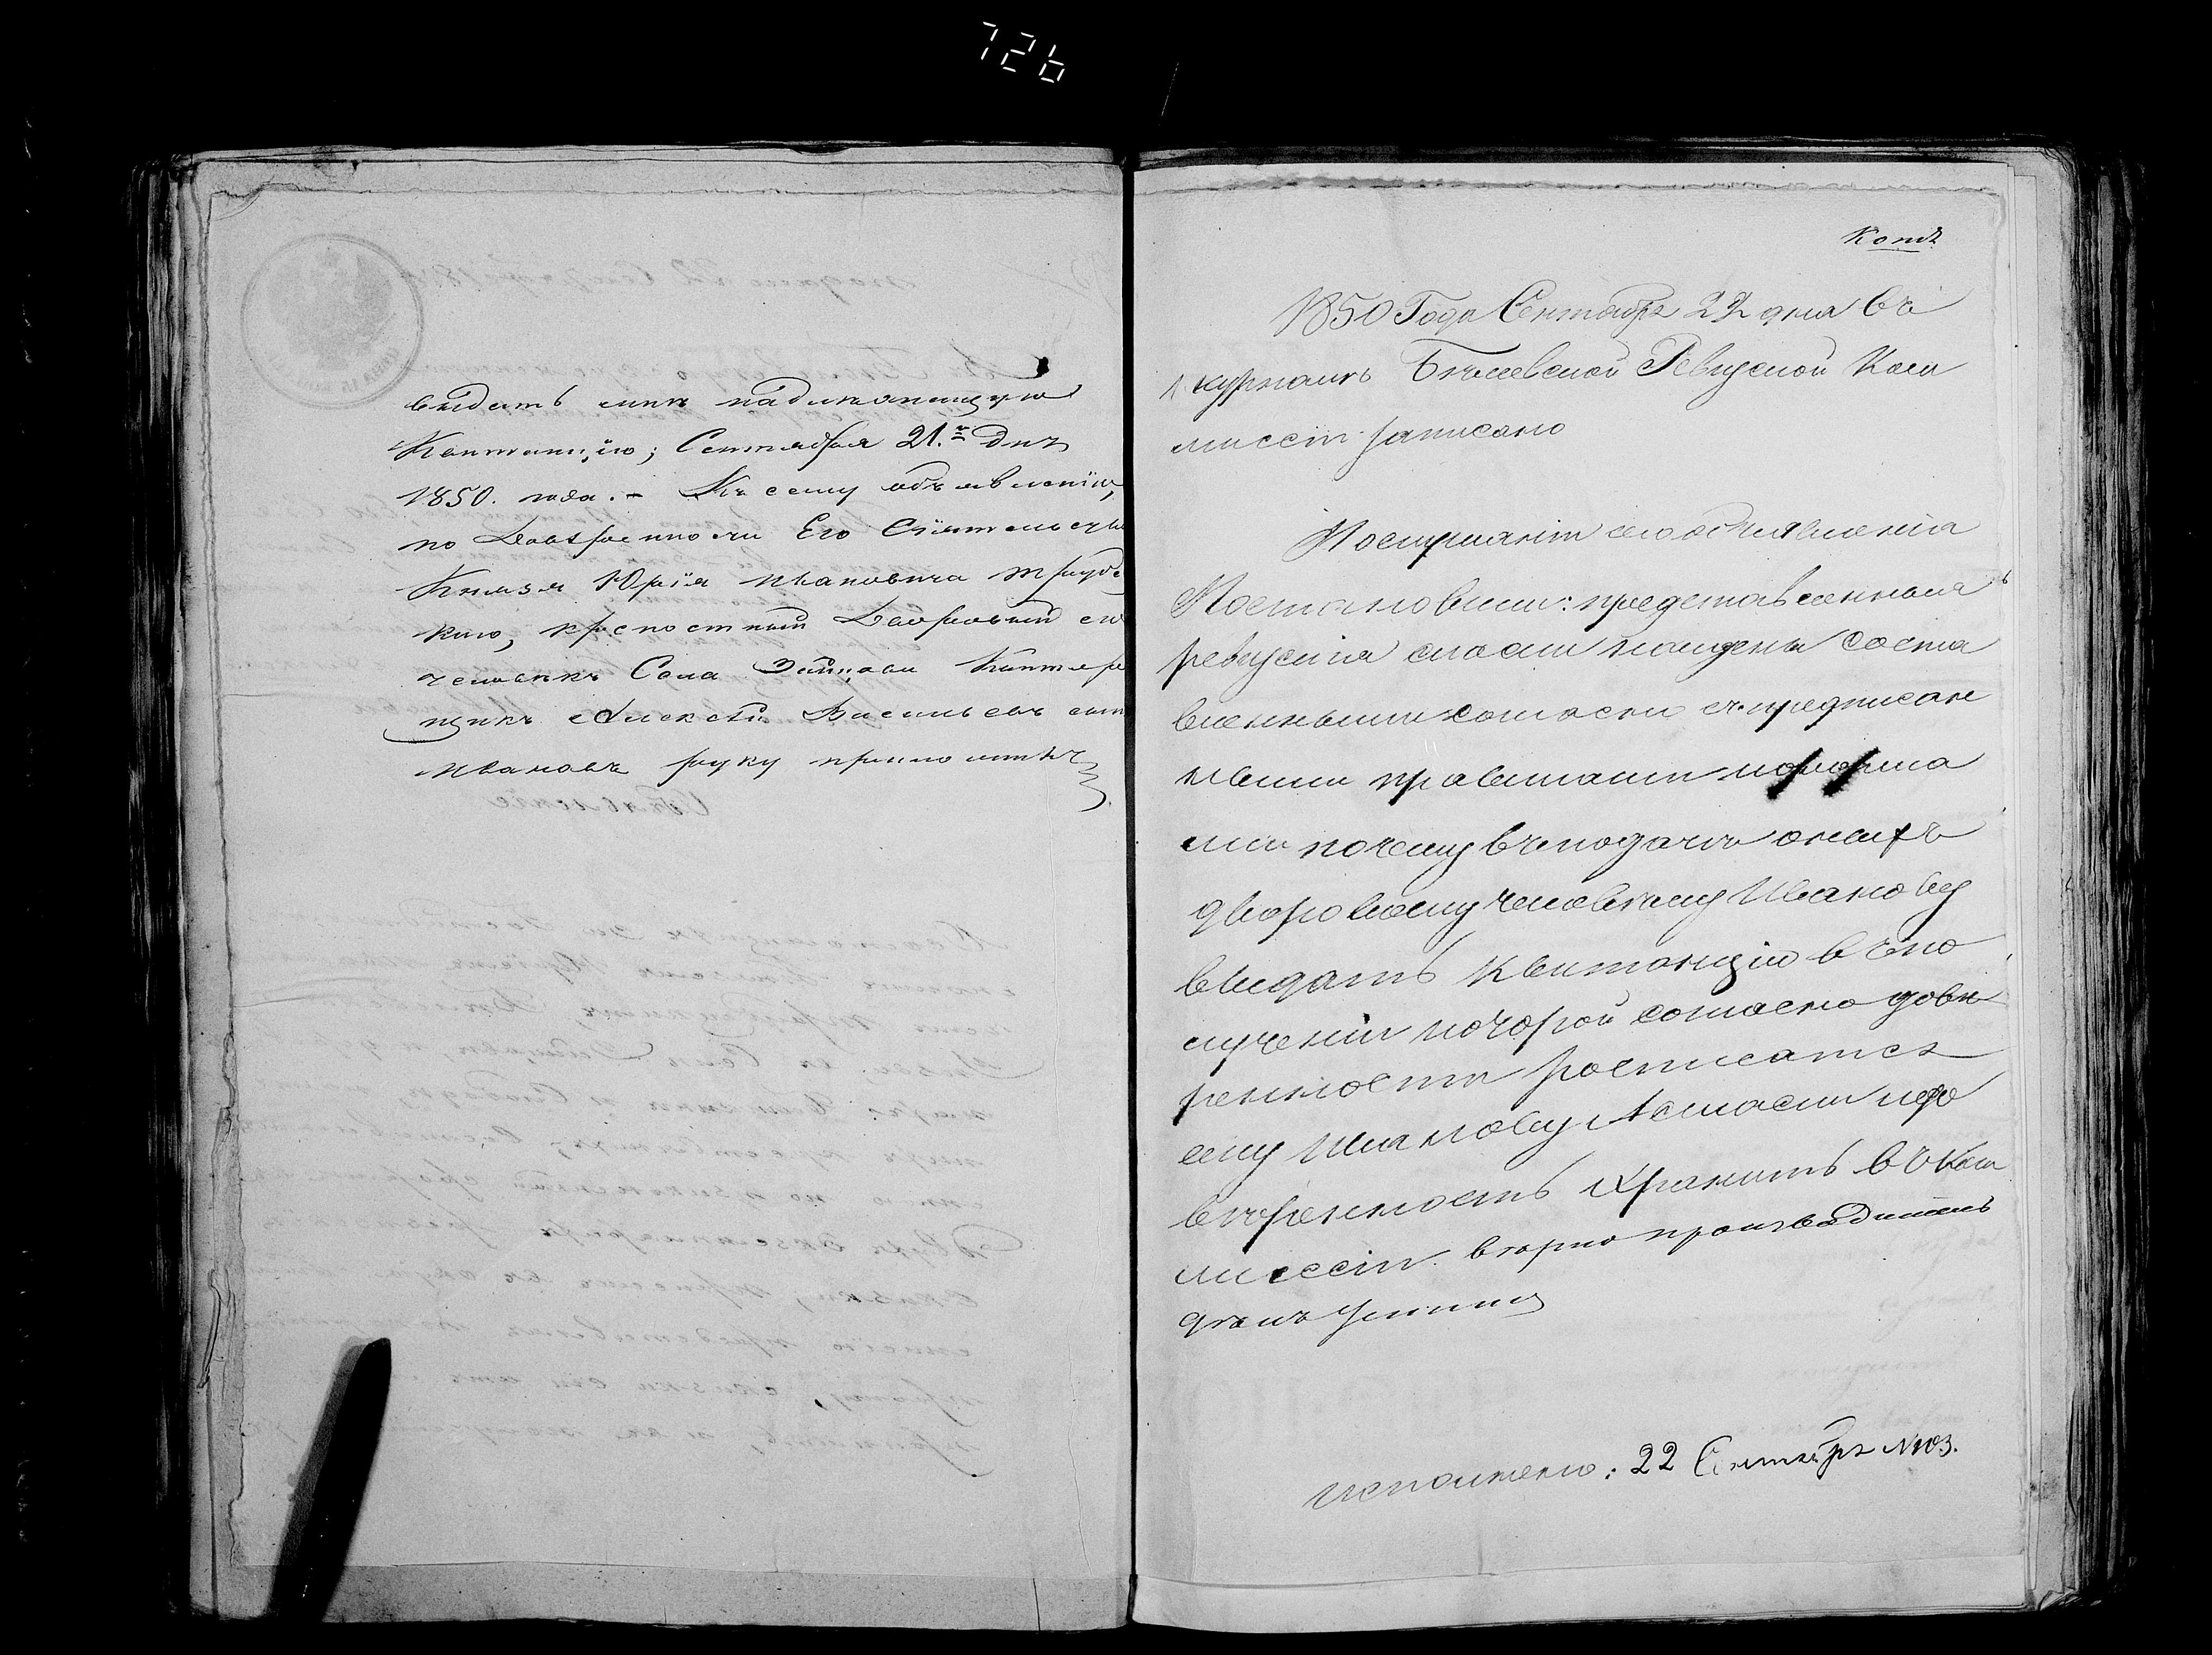 726
выдать мнѣ надлежащую
Квитанцію; Сентября 21.го дня
1850. года. - Къ сему объявленію,
по Довѣренности Его Сіятельства
Князя Юрія Ивановича Трубец
каго, крѣпостный Дворовый его
человѣкъ Села Зайцова Контор
щикъ Алексѣй Васильевъ сынъ
Ивановъ руку приложилъ
Копія
1850 Года Сентября 22 дня въ
журналѣ Бѣлевской Ревизской Ком
миссіи записано
По слушаніи сего объявленія
Постановили: представленныя
ревизскія сказки найдены соста
вленными согласно съ предписан
ными правилами и формa
ми почему въ подачѣ оныхъ
дворовому человѣку Иванову
выдать квитанцію въ по
лученіи которой согласно довѣ
ренности росписатся
ему Иванову
вѣренность хранить въ Ком
миссіи. вѣрно производитель
дѣлъ
исполнено: 22 Сентября №103.